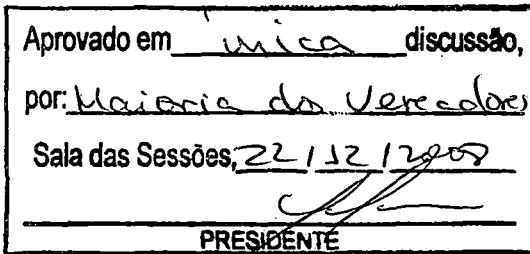 Aprovado em única discussão,
por: Maioria dos Vereadores
Sala das Sessões, 22/12/2008
PRESIDENTE